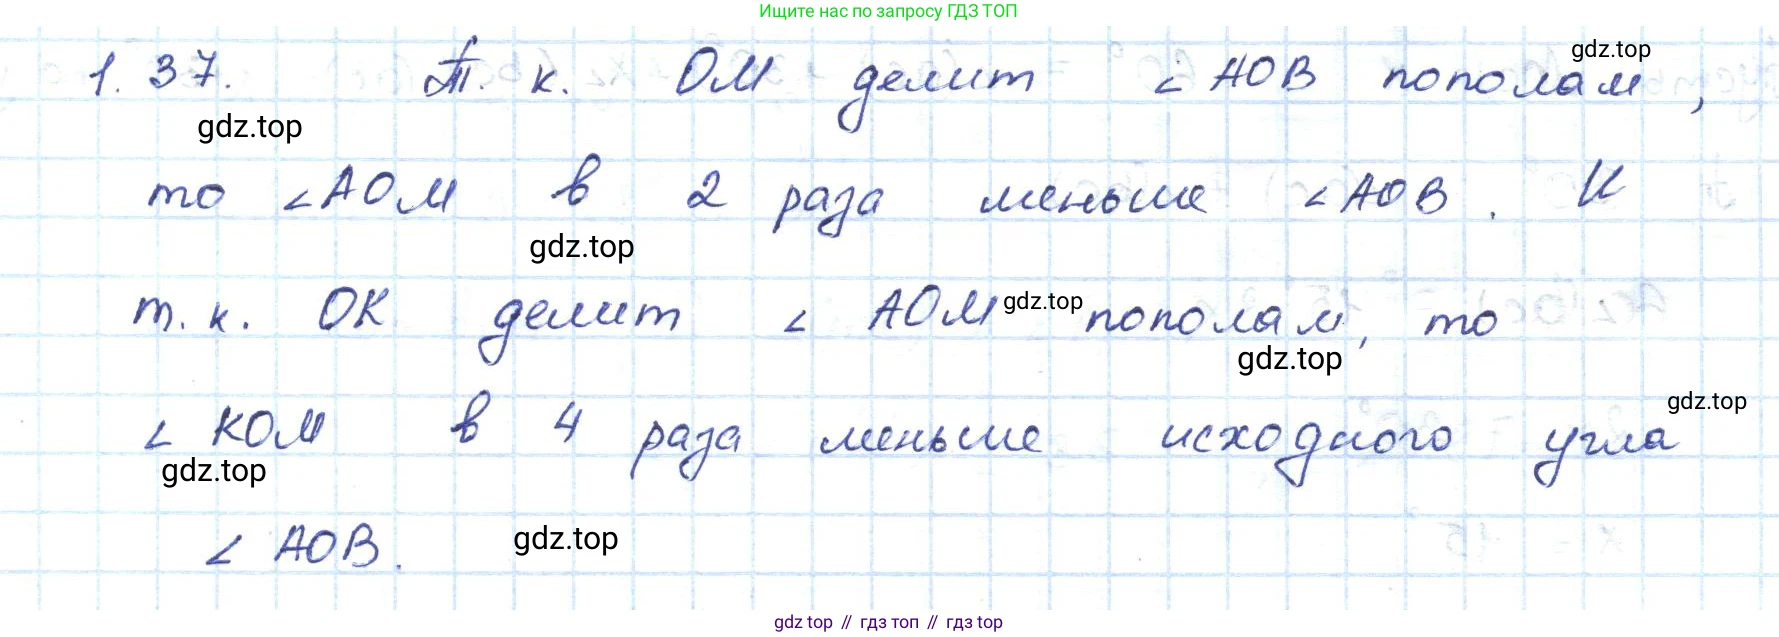 Ищите нас по запросу ГДЗ ТОП
1.37. Т. к. ОМ делит ∠ АОВ пополам,
gdz.top
gdz.top
то ∠АОМ в 2 раза меньше ∠АОВ. И
gdz.top
т. к. ОК делит ∠ АОМ пополам, то
gdz.top
gdz.top
∠ КОМ в 4 раза меньше исходного угла
gdz.top
gdz.top
∠ АОВ.
gdz.top
gdz top // гдз топ // gdz top